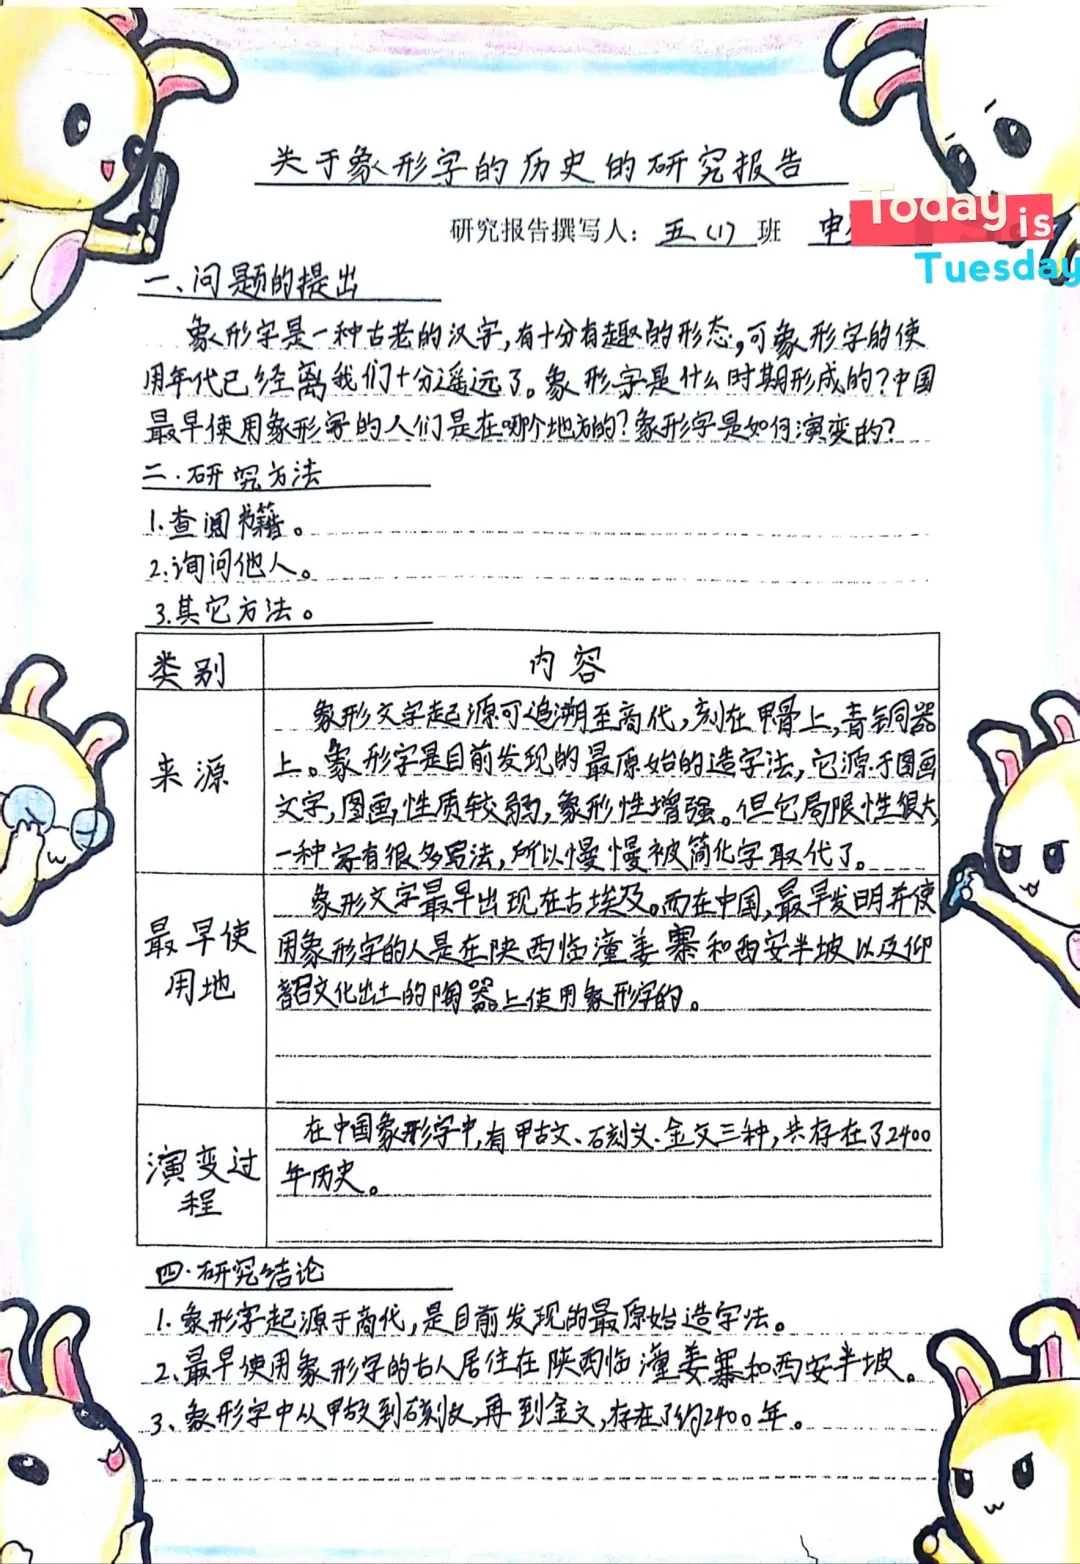 关于象形字的历史的研究报告
研究报告撰写人：五（1）班 申
Today is
Tuesday
一、问题的提出
象形字是一种古老的汉字，有十分有趣的形态，可象形字的使
用年代已经离我们十分遥远了。象形字是什么时期形成的？中国
最早使用象形字的人们是在哪个地方的？象形字是如何演变的？
二.研究方法
1.查阅书籍。
2.询问他人。
3.其它方法。
类别 内容
来源
象形文字起源可追溯至商代，刻在甲骨上，青铜器
上。象形字是目前发现的最原始的造字法，它源于图画
文字，图画性质较弱，象形性增强。但它局限性很大，
一种字有很多写法，所以慢慢被简化字取代了。
最早使
用地
象形文字最早出现在古埃及。而在中国，最早发明并使
用象形字的人是在陕西临潼姜寨和西安半坡以及仰
韶文化出土的陶器上使用象形字的。
演变过
程
在中国象形字中，有甲古文、石刻文、金文三种，共存在了2400
年历史。
四.研究结论
1.象形字起源于商代，是目前发现的最原始造字法。
2.最早使用象形字的古人居住在陕西临潼姜寨和西安半坡。
3、象形字中从甲故文到石刻文，再到金文，存在了约2400年。